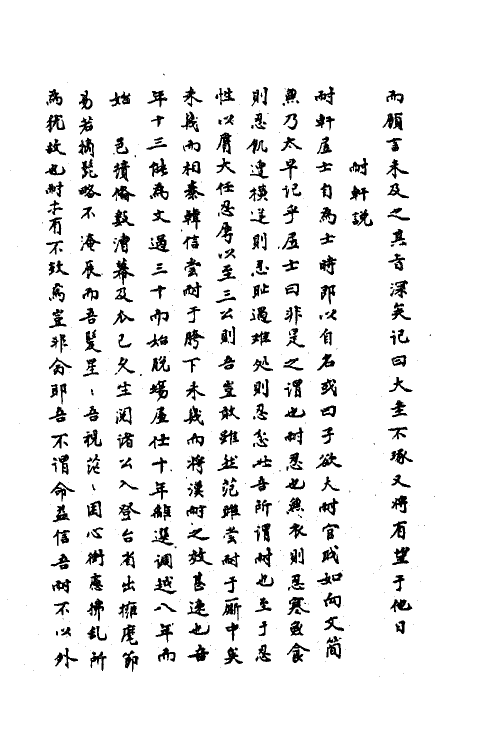 而願言未及之其旨深矣記曰大圭不琢又將有望于他日
耐軒説
耐軒居士自為士時即以自名或曰子欲大耐官職如向文簡
無乃太早記乎居士曰非是之謂也耐忍也無衣則忍寒無食
則忍飢遭横逆則忍耻遇難処則忍忿此吾所謂耐也至于忍
性以膺大任忍辱以至三公則吾豈敢雖然范雎嘗耐于厠中矣
未幾而相秦韓信嘗耐于胯下未幾而將漢耐之效甚速也吾
年十三能為文過三十而始脱場屋仕十年離選調越八年而
始 邑積倚数漕幕及瓜已久生閲諸公入登台省出擁麾節
易若摘髭略不淹辰而吾髮星〻吾視茫〻困心衡慮拂乱所
為犹故也耐未有不效焉豈非命耶吾不謂命益信吾耐不以外